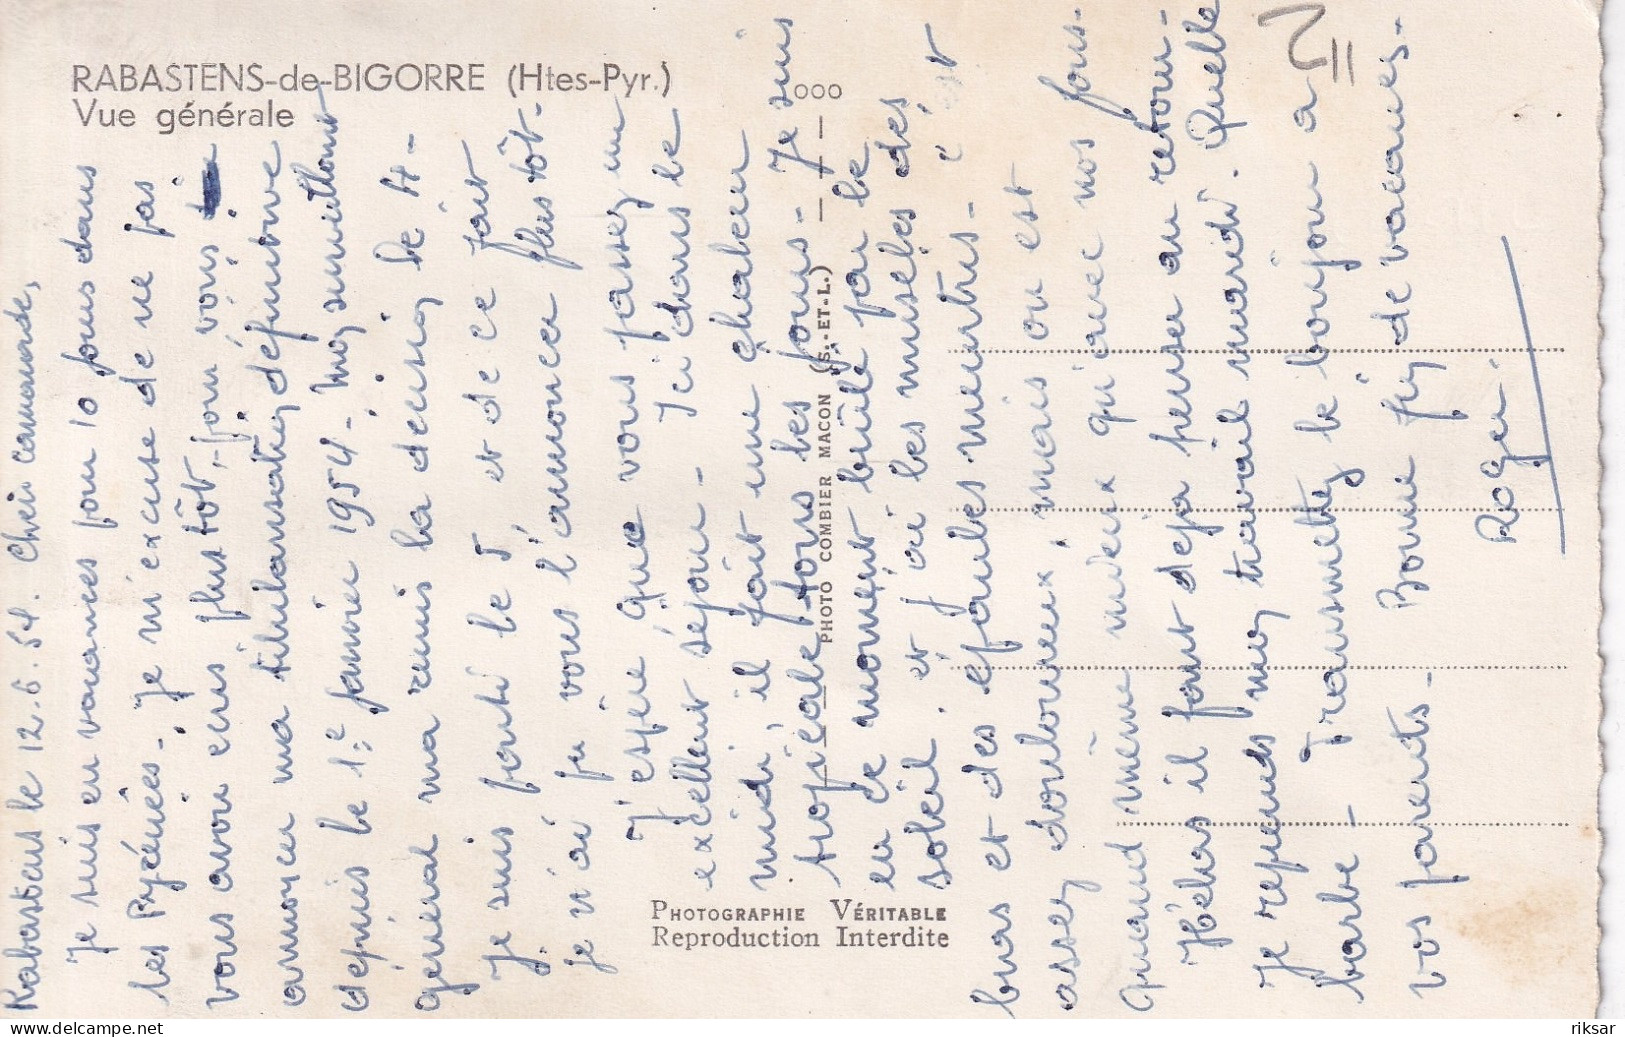 RABASTENS-de-BIGORRE (Htes-Pyr.)
Vue générale
ooo
PHOTO COMBIER MACON (S.-ET-L.)
PHOTOGRAPHIE VÉRITABLE
Reproduction Interdite
Rabastens le 12.6.54. Cher camarade,
Je suis en vacances pour 10 jours dans
les Pyrénées. Je m'excuse de ne pas
vous avoir écris plus tôt, pour vous
annoncer ma titularisation définitive
depuis le 1er janvier 1954. Mon
général m'a remis la décision le 4 -
Je suis parti le 5 et de ce fait
je n'ai pu vous l'annoncer plus tôt.
J'espère que vous passez un
excellent séjour - Ici dans le
midi, il fait une chaleur
tropicale tous les jours - Je suis
en ce moment brûlé par le
soleil. et j'ai les muscles des
bras et des épaules meurtris - c'est
assez douloureux, mais on est
quand même mieux qu'avec nos fous.
Hélas il faut déjà penser au retour -
Je reprends mon travail mardi. Quelle
barbe - Transmettez le bonjour à
vos parents - Bonne fin de vacances -
Roger
riksar